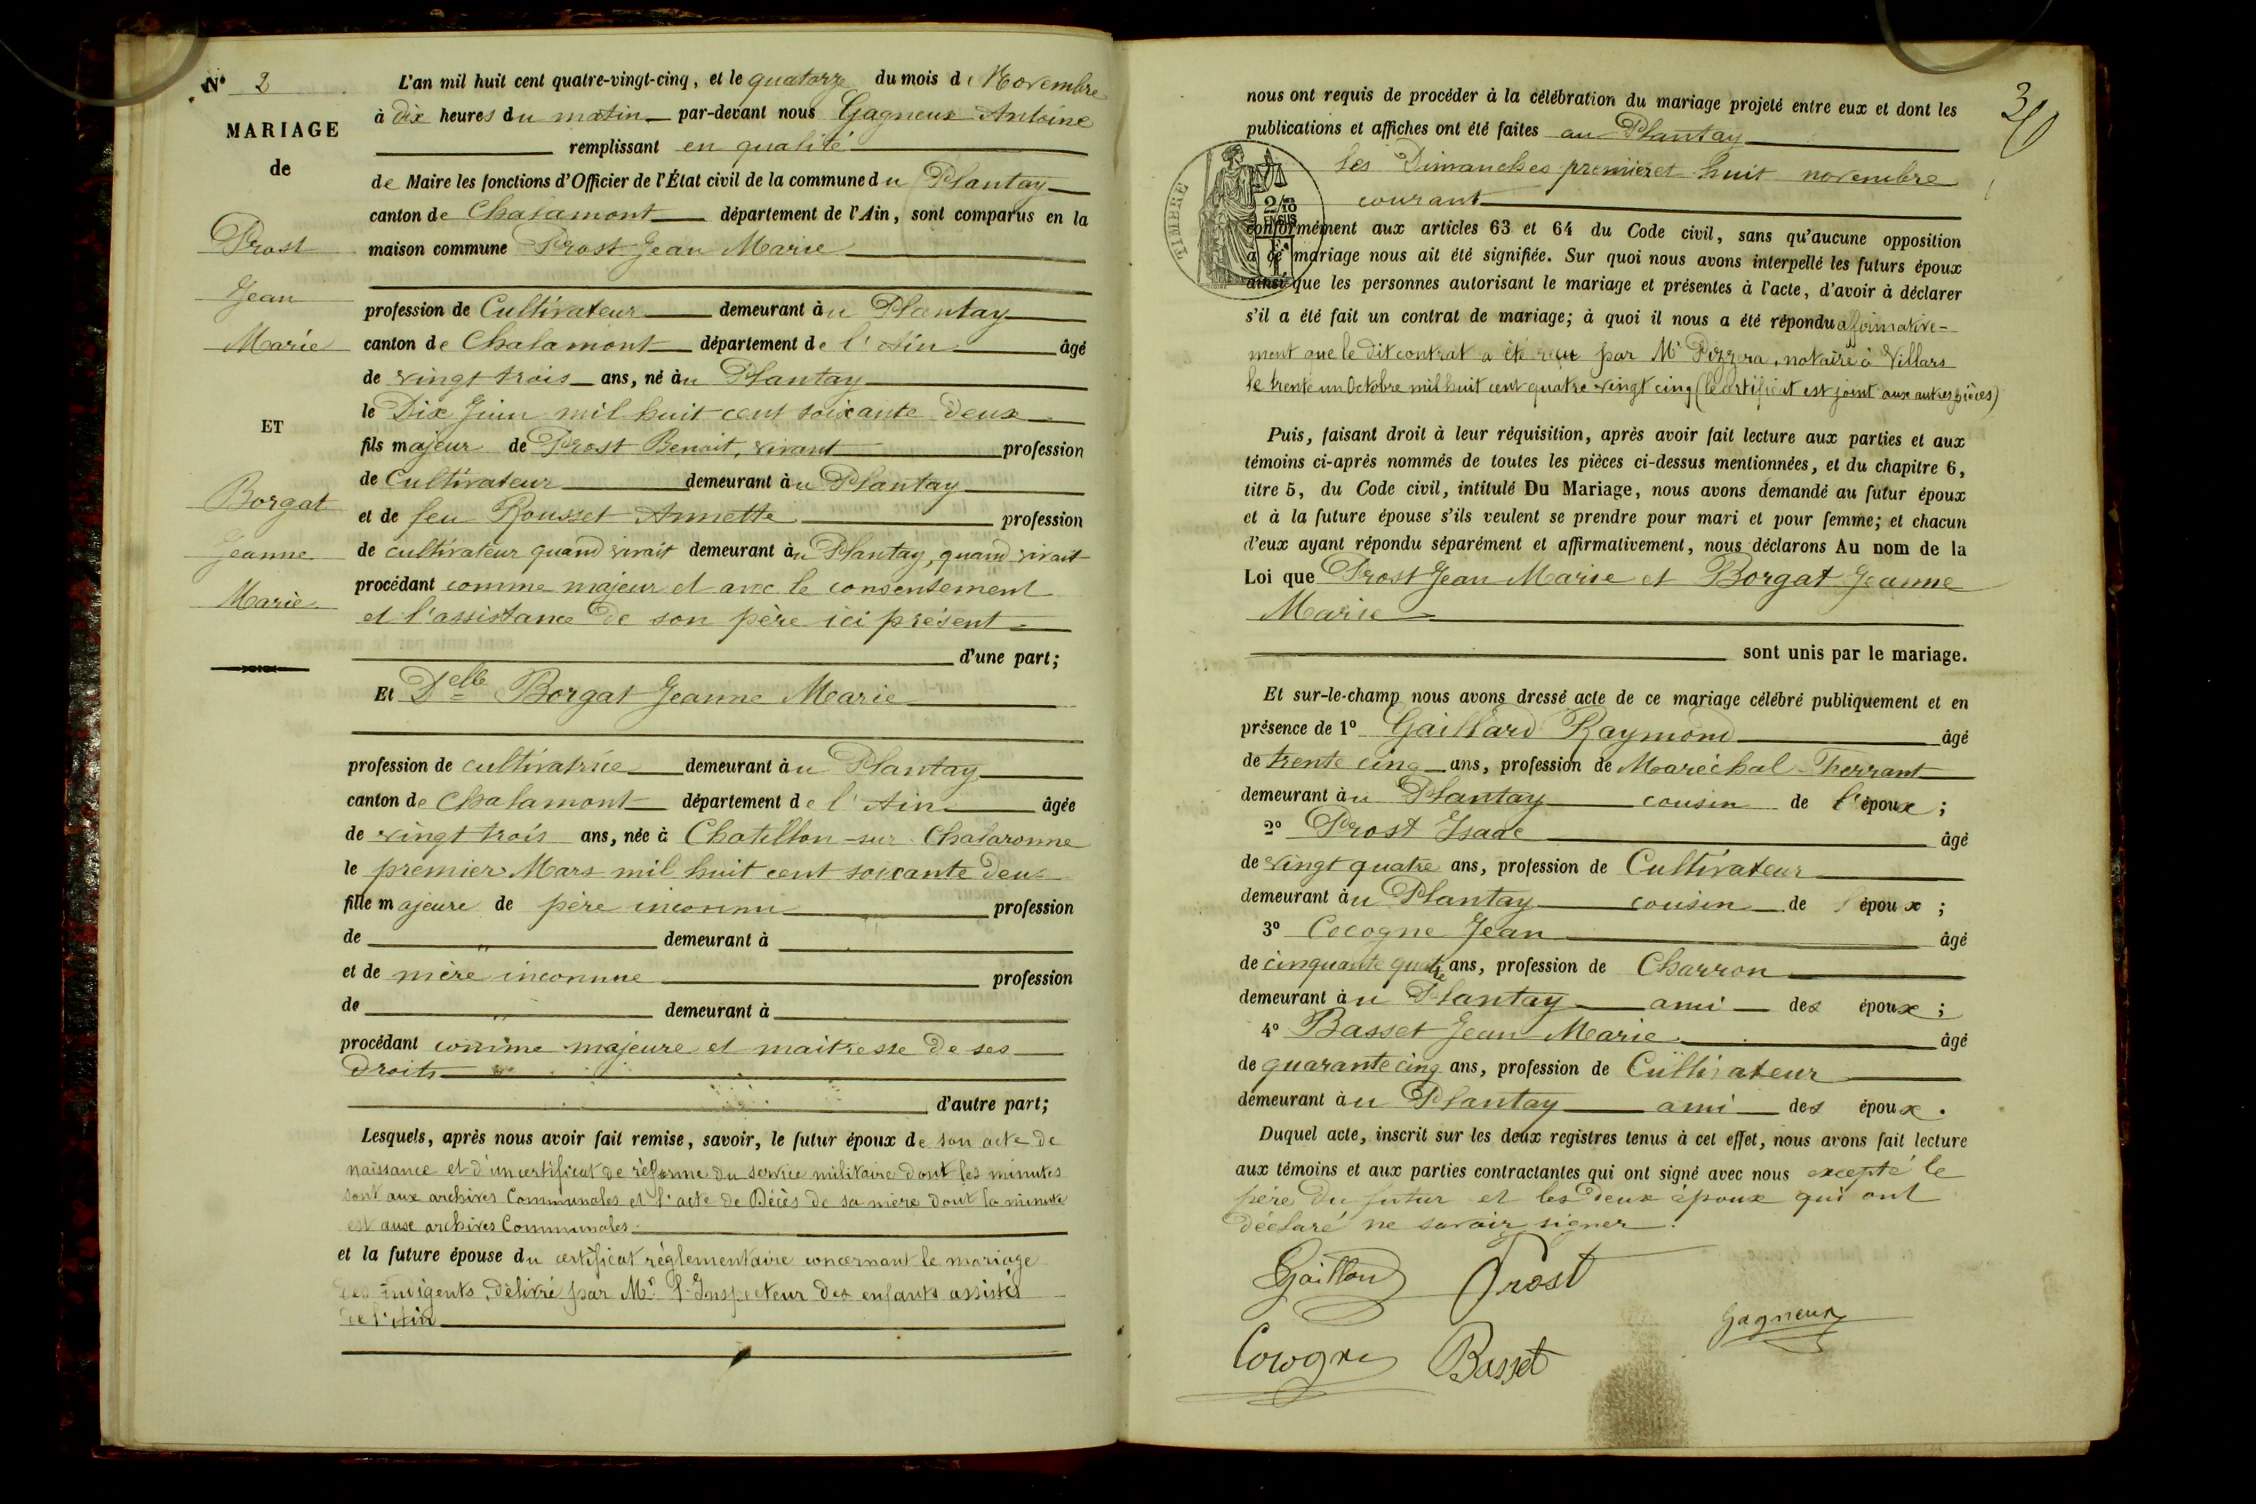 N° 2
MARIAGE
de
Prost
Jean
Marie
ET
Borgat
Jeanne
Marie
L'an mil huit cent quatre-vingt-cinq, et le quatorze du mois de Novembre
à dix heures du matin par-devant nous Gagneux Antoine
remplissant en qualité
de Maire les fonctions d'Officier de l'État civil de la commune du Plantay
canton de Chalamont département de l'Ain, sont comparus en la
maison commune Prost Jean Marie
profession de Cultivateur demeurant au Plantay
canton de Chalamont département de l'Ain âgé
de vingt trois ans, né au Plantay
le Dix Juin mil huit cent soixante deux
fils majeur de Prost Benoit, vivant profession
de Cultivateur demeurant au Plantay
et de feu Rousset Annette profession
de cultivateur quand vivait demeurant au Plantay, quand vivait
procédant comme majeur et avec le consentement
et l'assistance de son père ici présent
d'une part;
Et Delle Borgat Jeanne Marie
profession de cultivatrice demeurant au Plantay
canton de Chalamont département de l'Ain âgée
de vingt trois ans, née à Chatillon-sur-Chalaronne
le premier Mars mil huit cent soixante deux
fille majeure de père inconnu profession
de " demeurant à
et de mère inconnue profession
de " demeurant à
procédant comme majeure et maitresse de ses
droits
d'autre part;
Lesquels, après nous avoir fait remise, savoir, le futur époux de son acte de
naissance et d'un certificat de réforme du service militaire dont les minutes
sont aux archives Communales et l'acte de Décès de sa mère dont la minute
est aux archives Communales.
et la future épouse du certificat réglementaire concernant le mariage
des indigents, délivré par Mr l'Inspecteur des enfants assistés
de l'Ain
30
nous ont requis de procéder à la célébration du mariage projeté entre eux et dont les
publications et affiches ont été faites au Plantay
les Dimanches premier et huit novembre
courant
TIMBRE
2/10 EN SUS
conformément aux articles 63 et 64 du Code civil, sans qu'aucune opposition
à ce mariage nous ait été signifiée. Sur quoi nous avons interpellé les futurs époux
ainsi que les personnes autorisant le mariage et présentes à l'acte, d'avoir à déclarer
s'il a été fait un contrat de mariage; à quoi il nous a été répondu affirmative-
ment que le dit contrat a été reçu par Mr Pizzera, notaire à Villars
le trente un Octobre mil huit cent quatre vingt cinq (le certificat est joint aux autres pièces)
Puis, faisant droit à leur réquisition, après avoir fait lecture aux parties et aux
témoins ci-après nommés de toutes les pièces ci-dessus mentionnées, et du chapitre 6,
titre 5, du Code civil, intitulé Du Mariage, nous avons demandé au futur époux
et à la future épouse s'ils veulent se prendre pour mari et pour femme; et chacun
d'eux ayant répondu séparément et affirmativement, nous déclarons Au nom de la
Loi que Prost Jean Marie et Borgat Jeanne
Marie
sont unis par le mariage.
Et sur-le-champ nous avons dressé acte de ce mariage célébré publiquement et en
présence de 1° Gaillard Raymond âgé
de trente cinq ans, profession de Maréchal-Ferrant
demeurant au Plantay cousin de l'époux;
2° Prost Isaac âgé
de vingt quatre ans, profession de Cultivateur
demeurant au Plantay cousin de l'époux;
3° Cocogne Jean âgé
de cinquante quatre ans, profession de Charron
demeurant au Plantay ami des époux;
4° Basset Jean Marie âgé
de quarante cinq ans, profession de Cultivateur
demeurant au Plantay ami des époux.
Duquel acte, inscrit sur les deux registres tenus à cet effet, nous avons fait lecture
aux témoins et aux parties contractantes qui ont signé avec nous excepté le
père du futur et les deux époux qui ont
déclaré ne savoir signer.
Gaillard Prost
Gagneux
Cocogne Basset